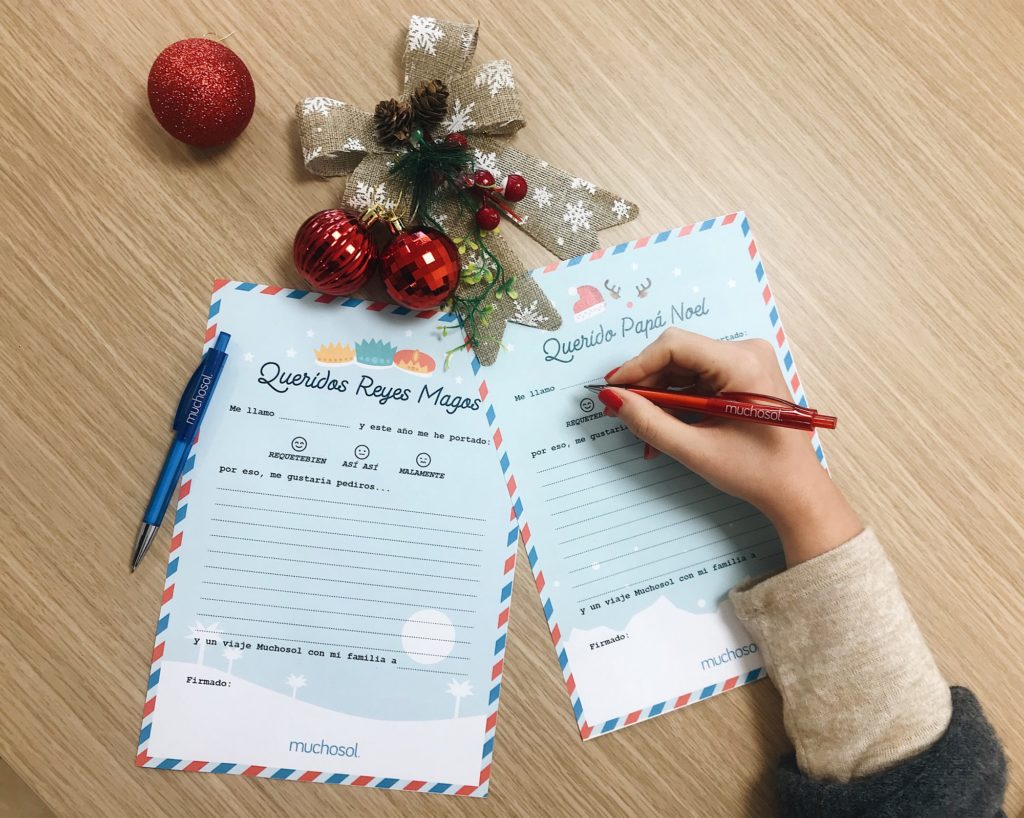 Queridos Reyes Magos
Me llamo
y este año me he portado:
REQUETEBIEN
ASÍ ASÍ
MALAMENTE
por eso, me gustaría pediros...
y un viaje Muchosol con mi familia a
Firmado:
muchosol
muchosol
Querido Papá Noel
Me llamo
portado:
por eso, me
y un viaje Muchosol con mi familia a
Firmado:
muchosol
muchosol